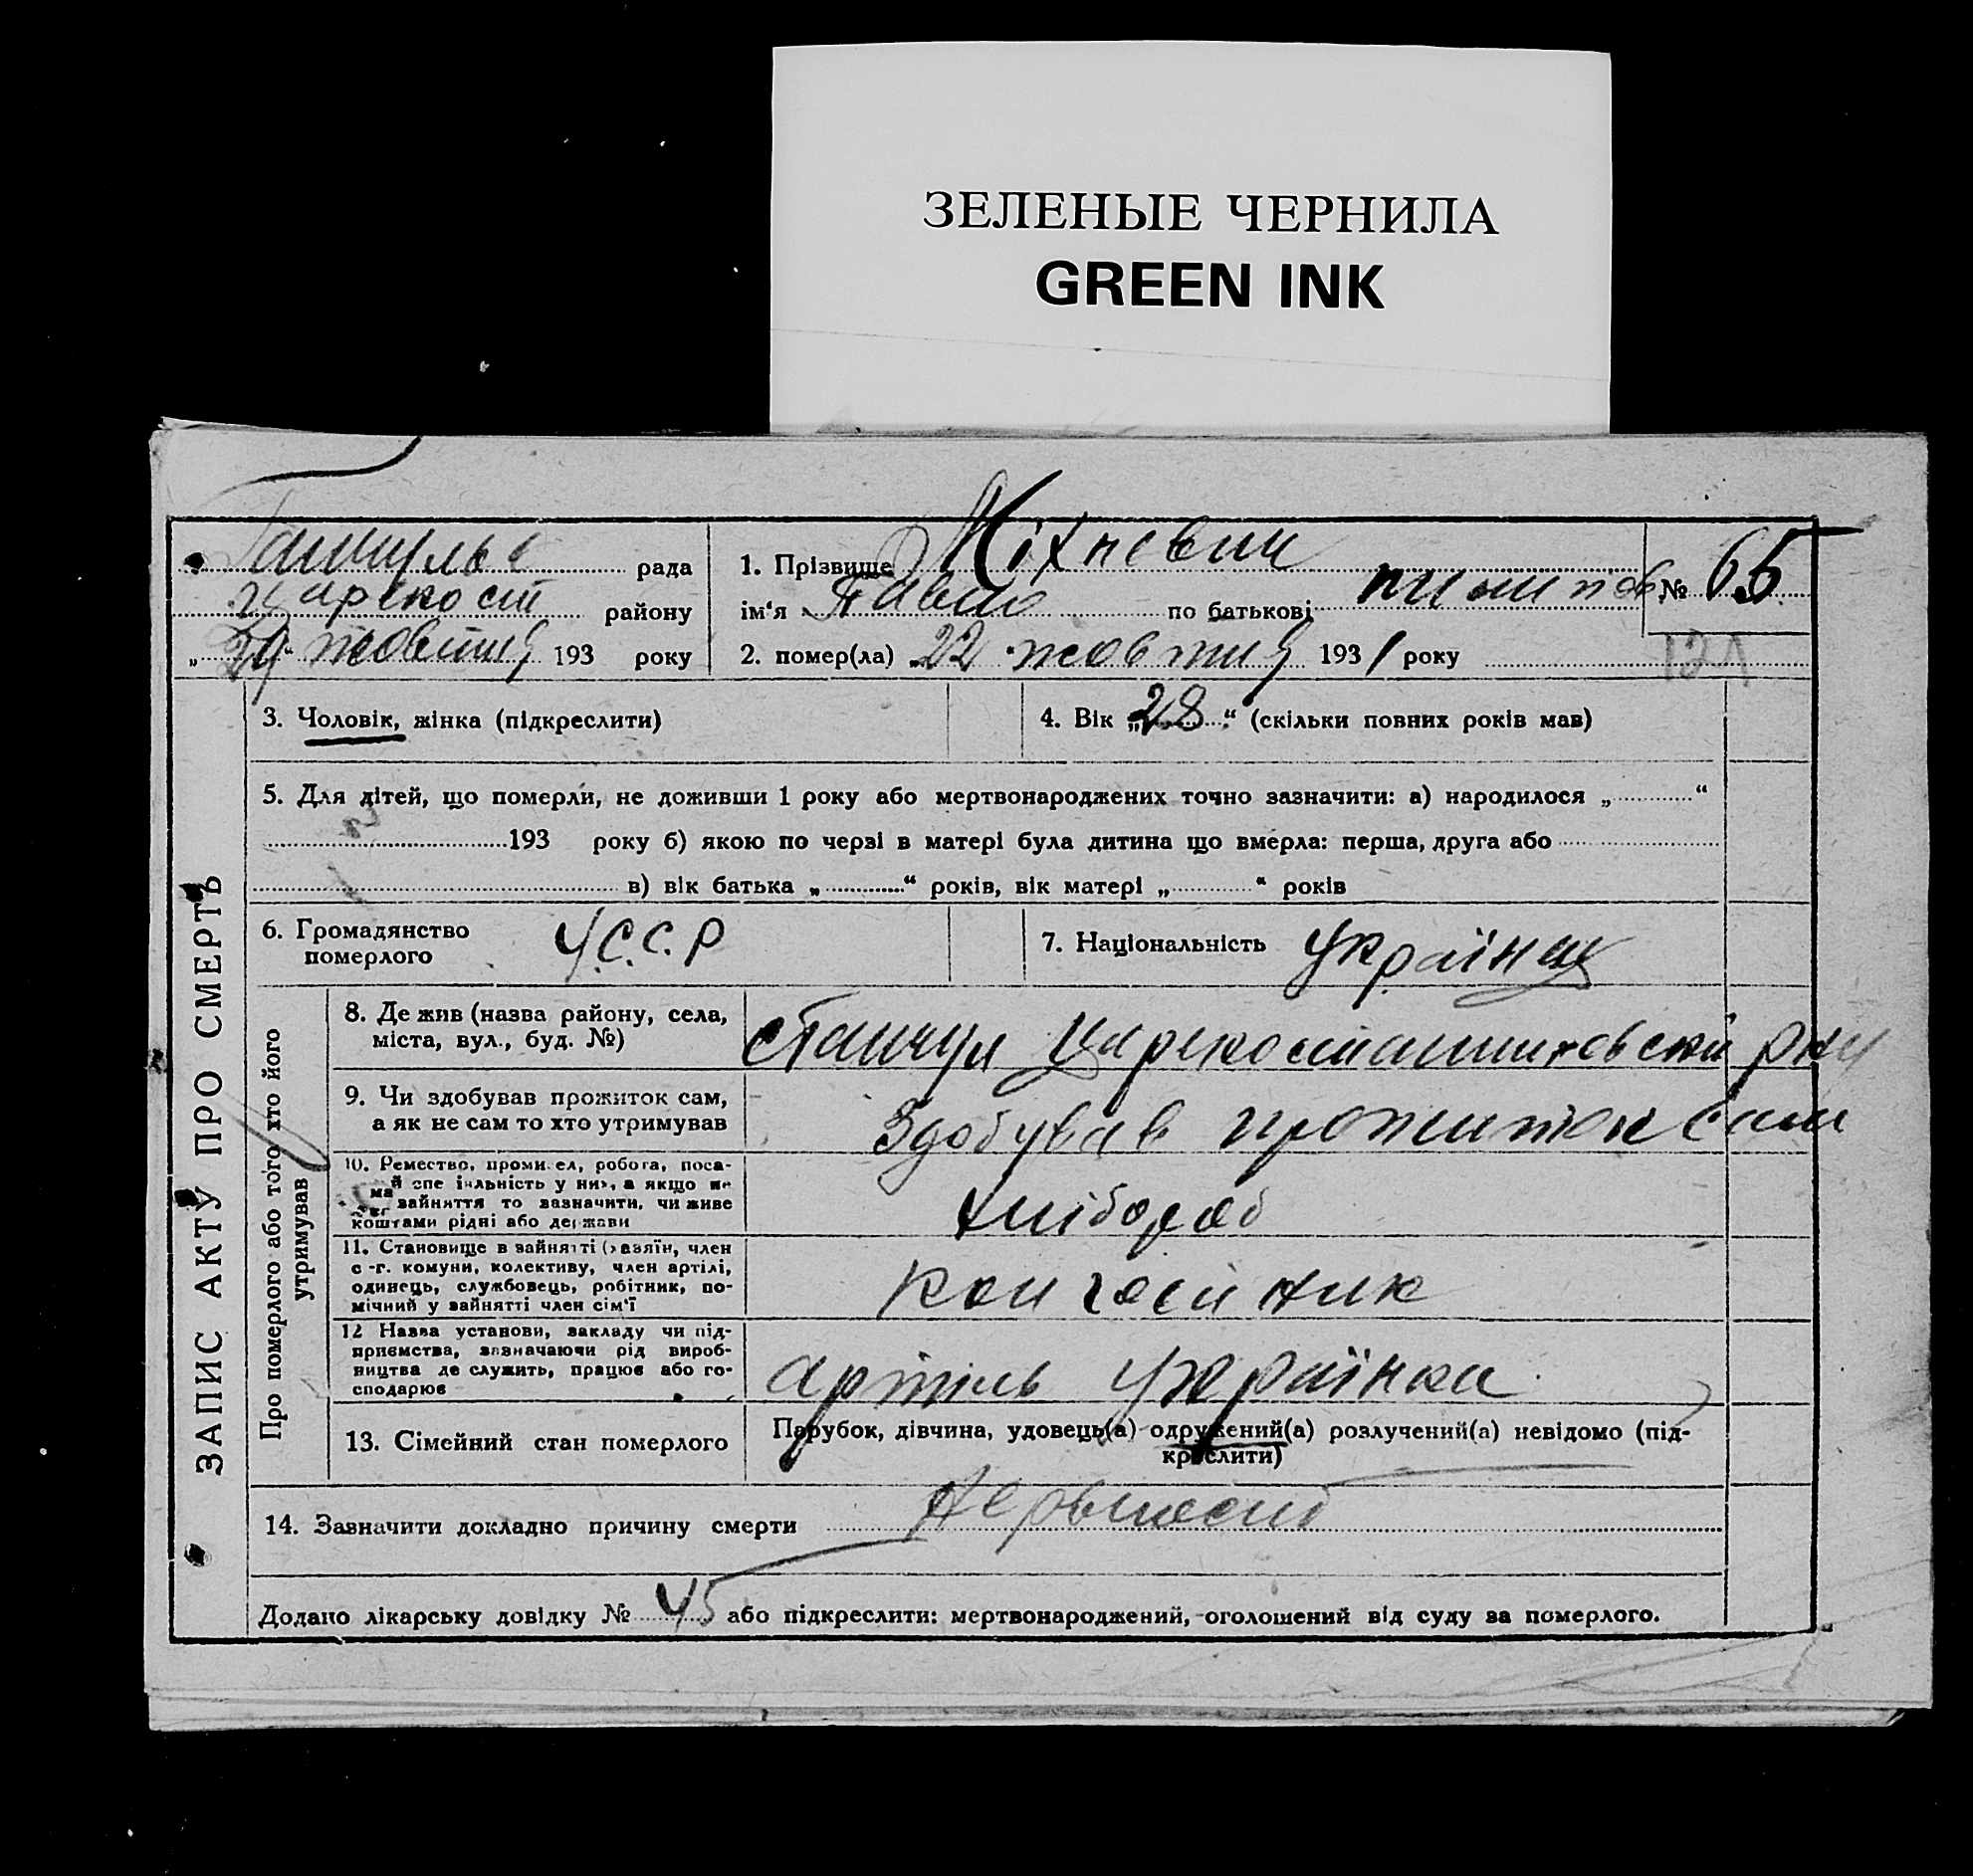 ЗЕЛЕНЫЕ ЧЕРНИЛА
GREEN INK
рада
району
жовтня 193 року
1. Прізвище Міхневич
ім'я Павло по батькові № 65
2. помер(ла) 22 жовтня 1931 року
121
ЗАПИС АКТУ ПРО СМЕРТЬ
3. Чоловік, жінка (підкреслити)
4. Вік „28“ (скільки повних років мав)
5. Для дітей, що померли, не доживши 1 року або мертвонароджених точно зазначити: а) народилося „ “
193 року б) якою по черзі в матері була дитина що вмерла: перша, друга або
в) вік батька „ “ років, вік матері „ “ років
6. Громадянство
померлого
У.С.С.Р
7. Національність українец
Про померлого або того хто його
утримував
8. Де жив (назва району, села,
міста, вул., буд. №)
9. Чи здобував прожиток сам,
а як не сам то хто утримував
Здобував прожиток сам
10. Ремество, промисел, робота, поса-
коштами рідні або держави
хлібороб
11. Становище в зайнятті (хазяїн, член
с-г. комуни, колективу, член артілі,
одинець, службовець, робітник, по-
мічний у зайнятті член сім'ї
колгоспник
12 Назва установи, закладу чи під-
приємства, зазначаючи рід вироб-
ництва де служить, працює або го-
сподарює
артіль Українка
13. Сімейний стан померлого
Парубок, дівчина, удовець(а) одружений(а) розлучений(а) невідомо (під-
креслити)
14. Зазначити докладно причину смерти
Додано лікарську довідку № 45 або підкреслити: мертвонароджений, оголошений від суду за померлого.